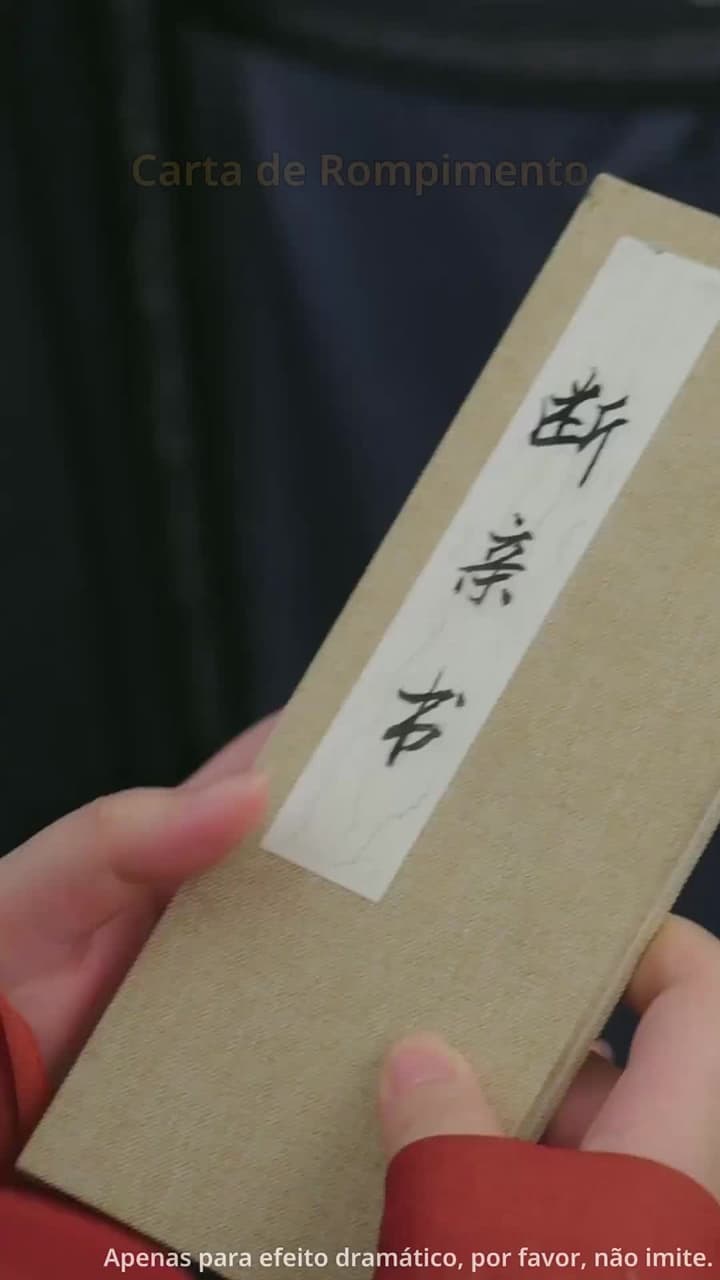 Carta de Rompimento
断亲书
Apenas para efeito dramático, por favor, não imite.